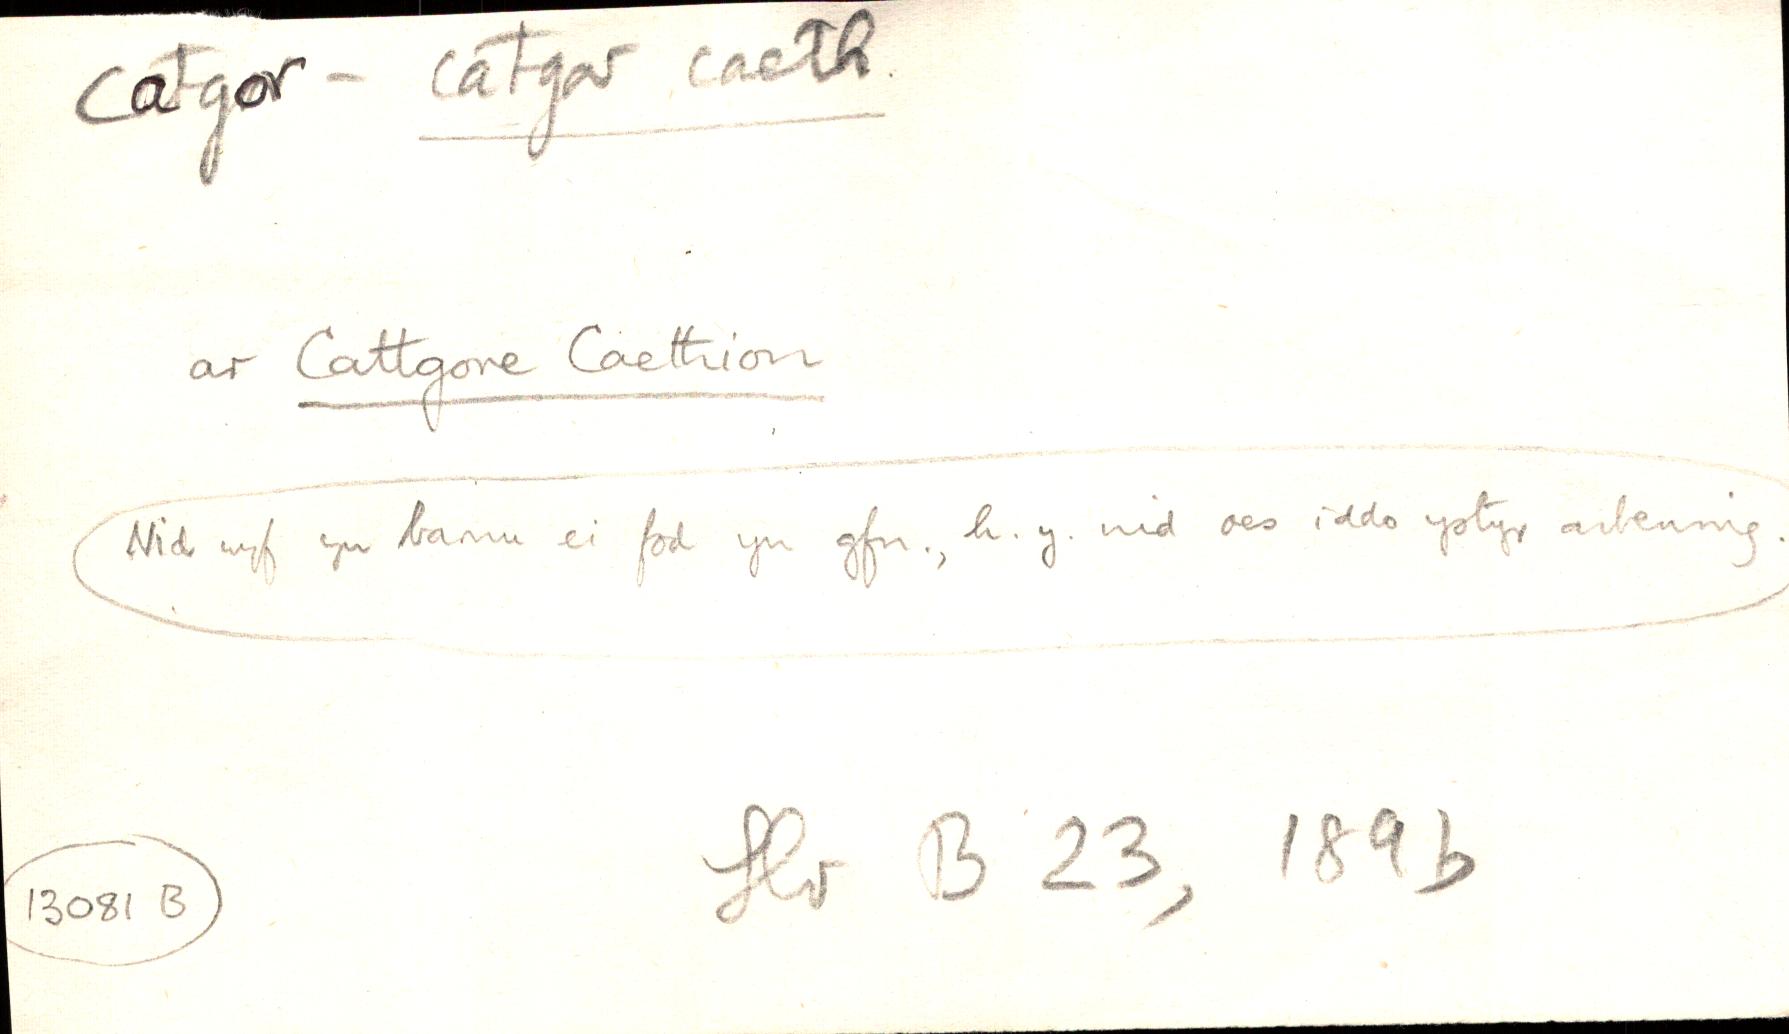 catgor - catgor caeth.
ar Cattgore Caethion
Nid wyf yn barnu ei fod yn gfn., h.y. nid oes iddo ystyr arbennig.
Llr B 23, 189b
13081 B